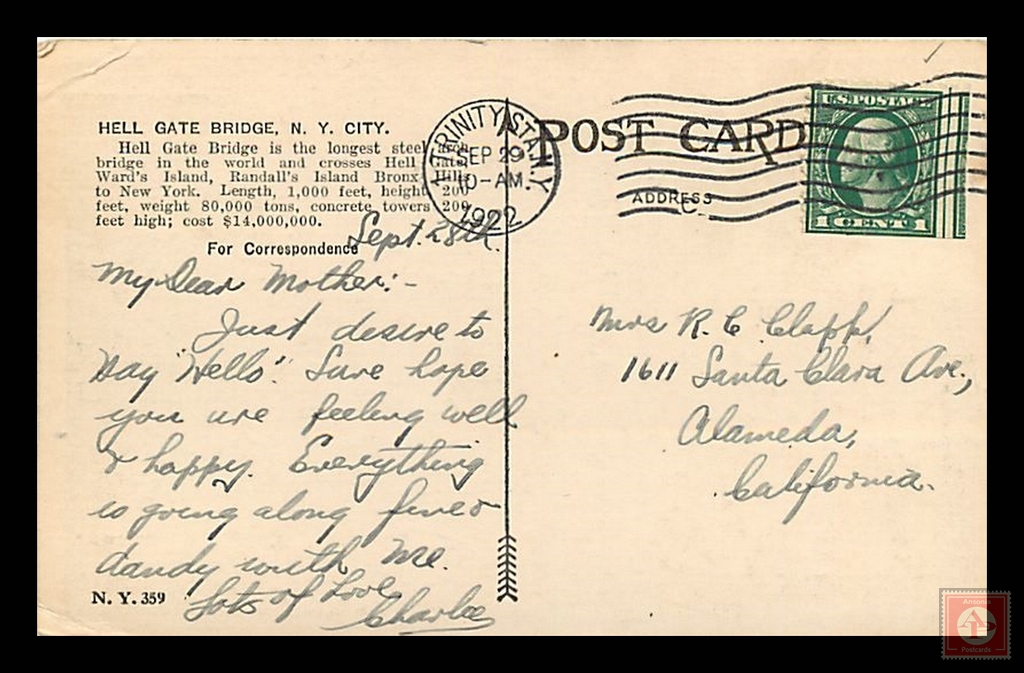 HELL GATE BRIDGE, N. Y. CITY.
Hell Gate Bridge is the longest steel arch
bridge in the world and crosses Hell Gate,
Ward's Island, Randall's Island Bronx Hills
to New York. Length, 1,000 feet, height 200
feet, weight 80,000 tons, concrete towers 200
feet high; cost $14,000,000.
For Correspondence
Sept. 28th.
My Dear Mother:-
Just desire to
say "Hello". Sure hope
you are feeling well
& happy. Everything
is going along fine &
dandy with me.
Lots of Love
Charlie
N. Y. 359
TRINITY STA. N.Y.
SEP 29
10-AM.
1922
POST CARD
ADDRESS
U.S. POSTAGE
1 CENT 1
Mrs R. C Clapp,
1611 Santa Clara Ave.,
Alameda,
California.
Postcards